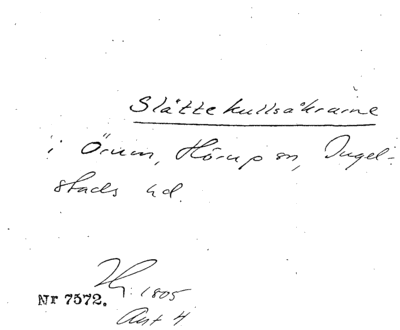 Slåttekullsåkrarne
i Örum, Hörup sn, Ingel-
stads hd.
Nr 7572. 1805
Akt 4